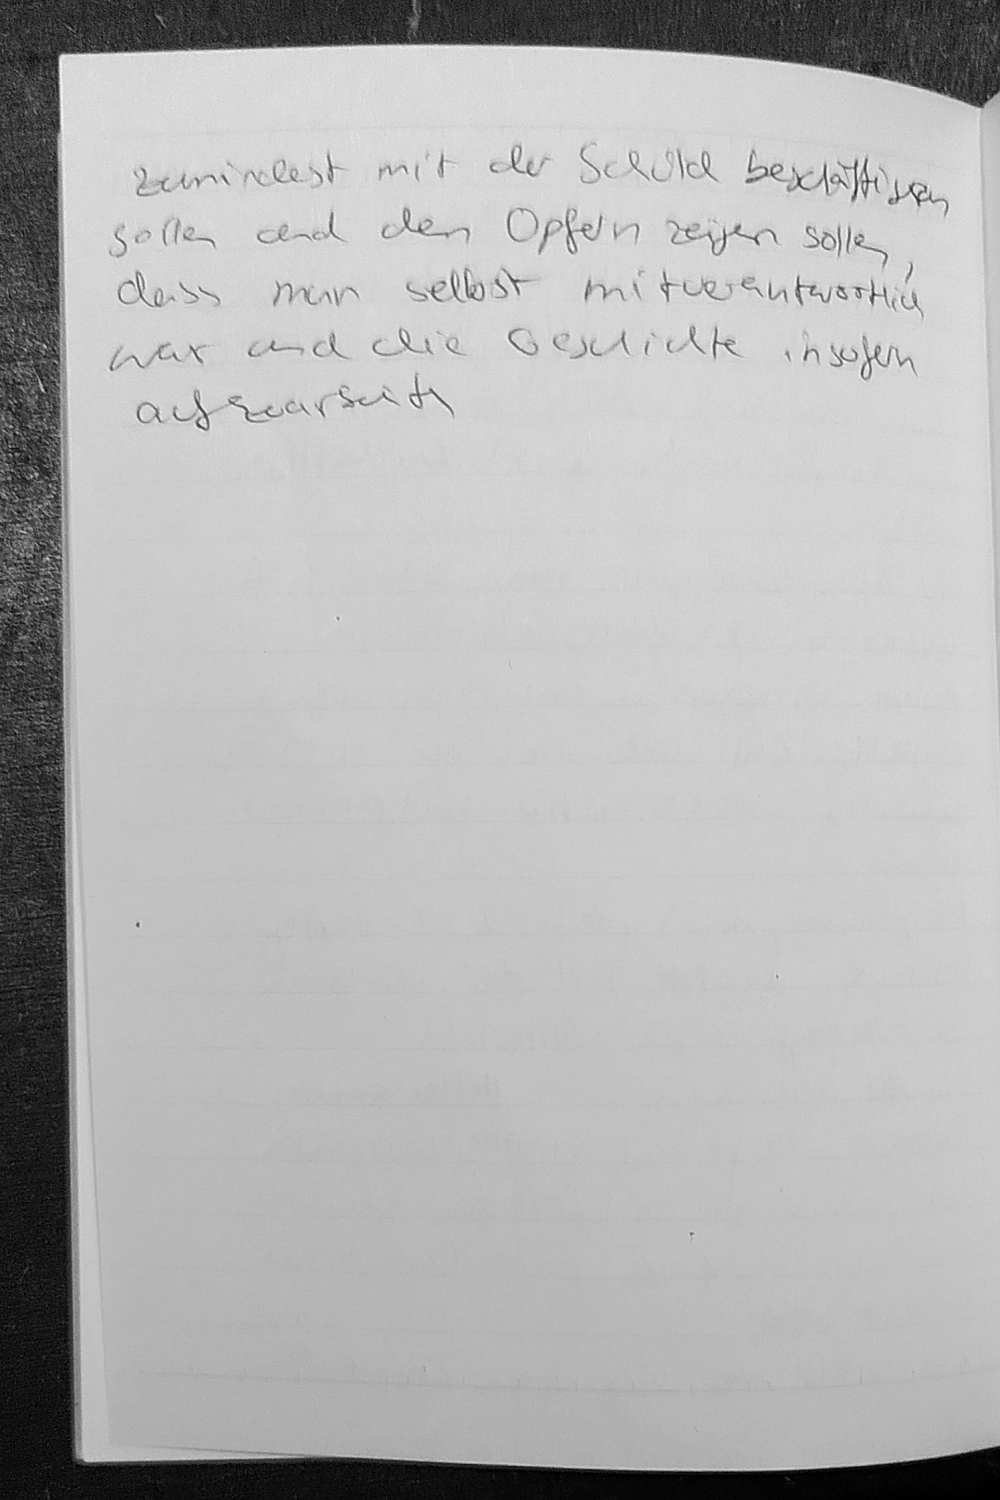 zumindest mit der Schuld beschäftigen
sollen und den Opfern zeigen sollen,
dass man selbst mitverantwortlich
war und die Geschichte insofern
aufzuarbeiten